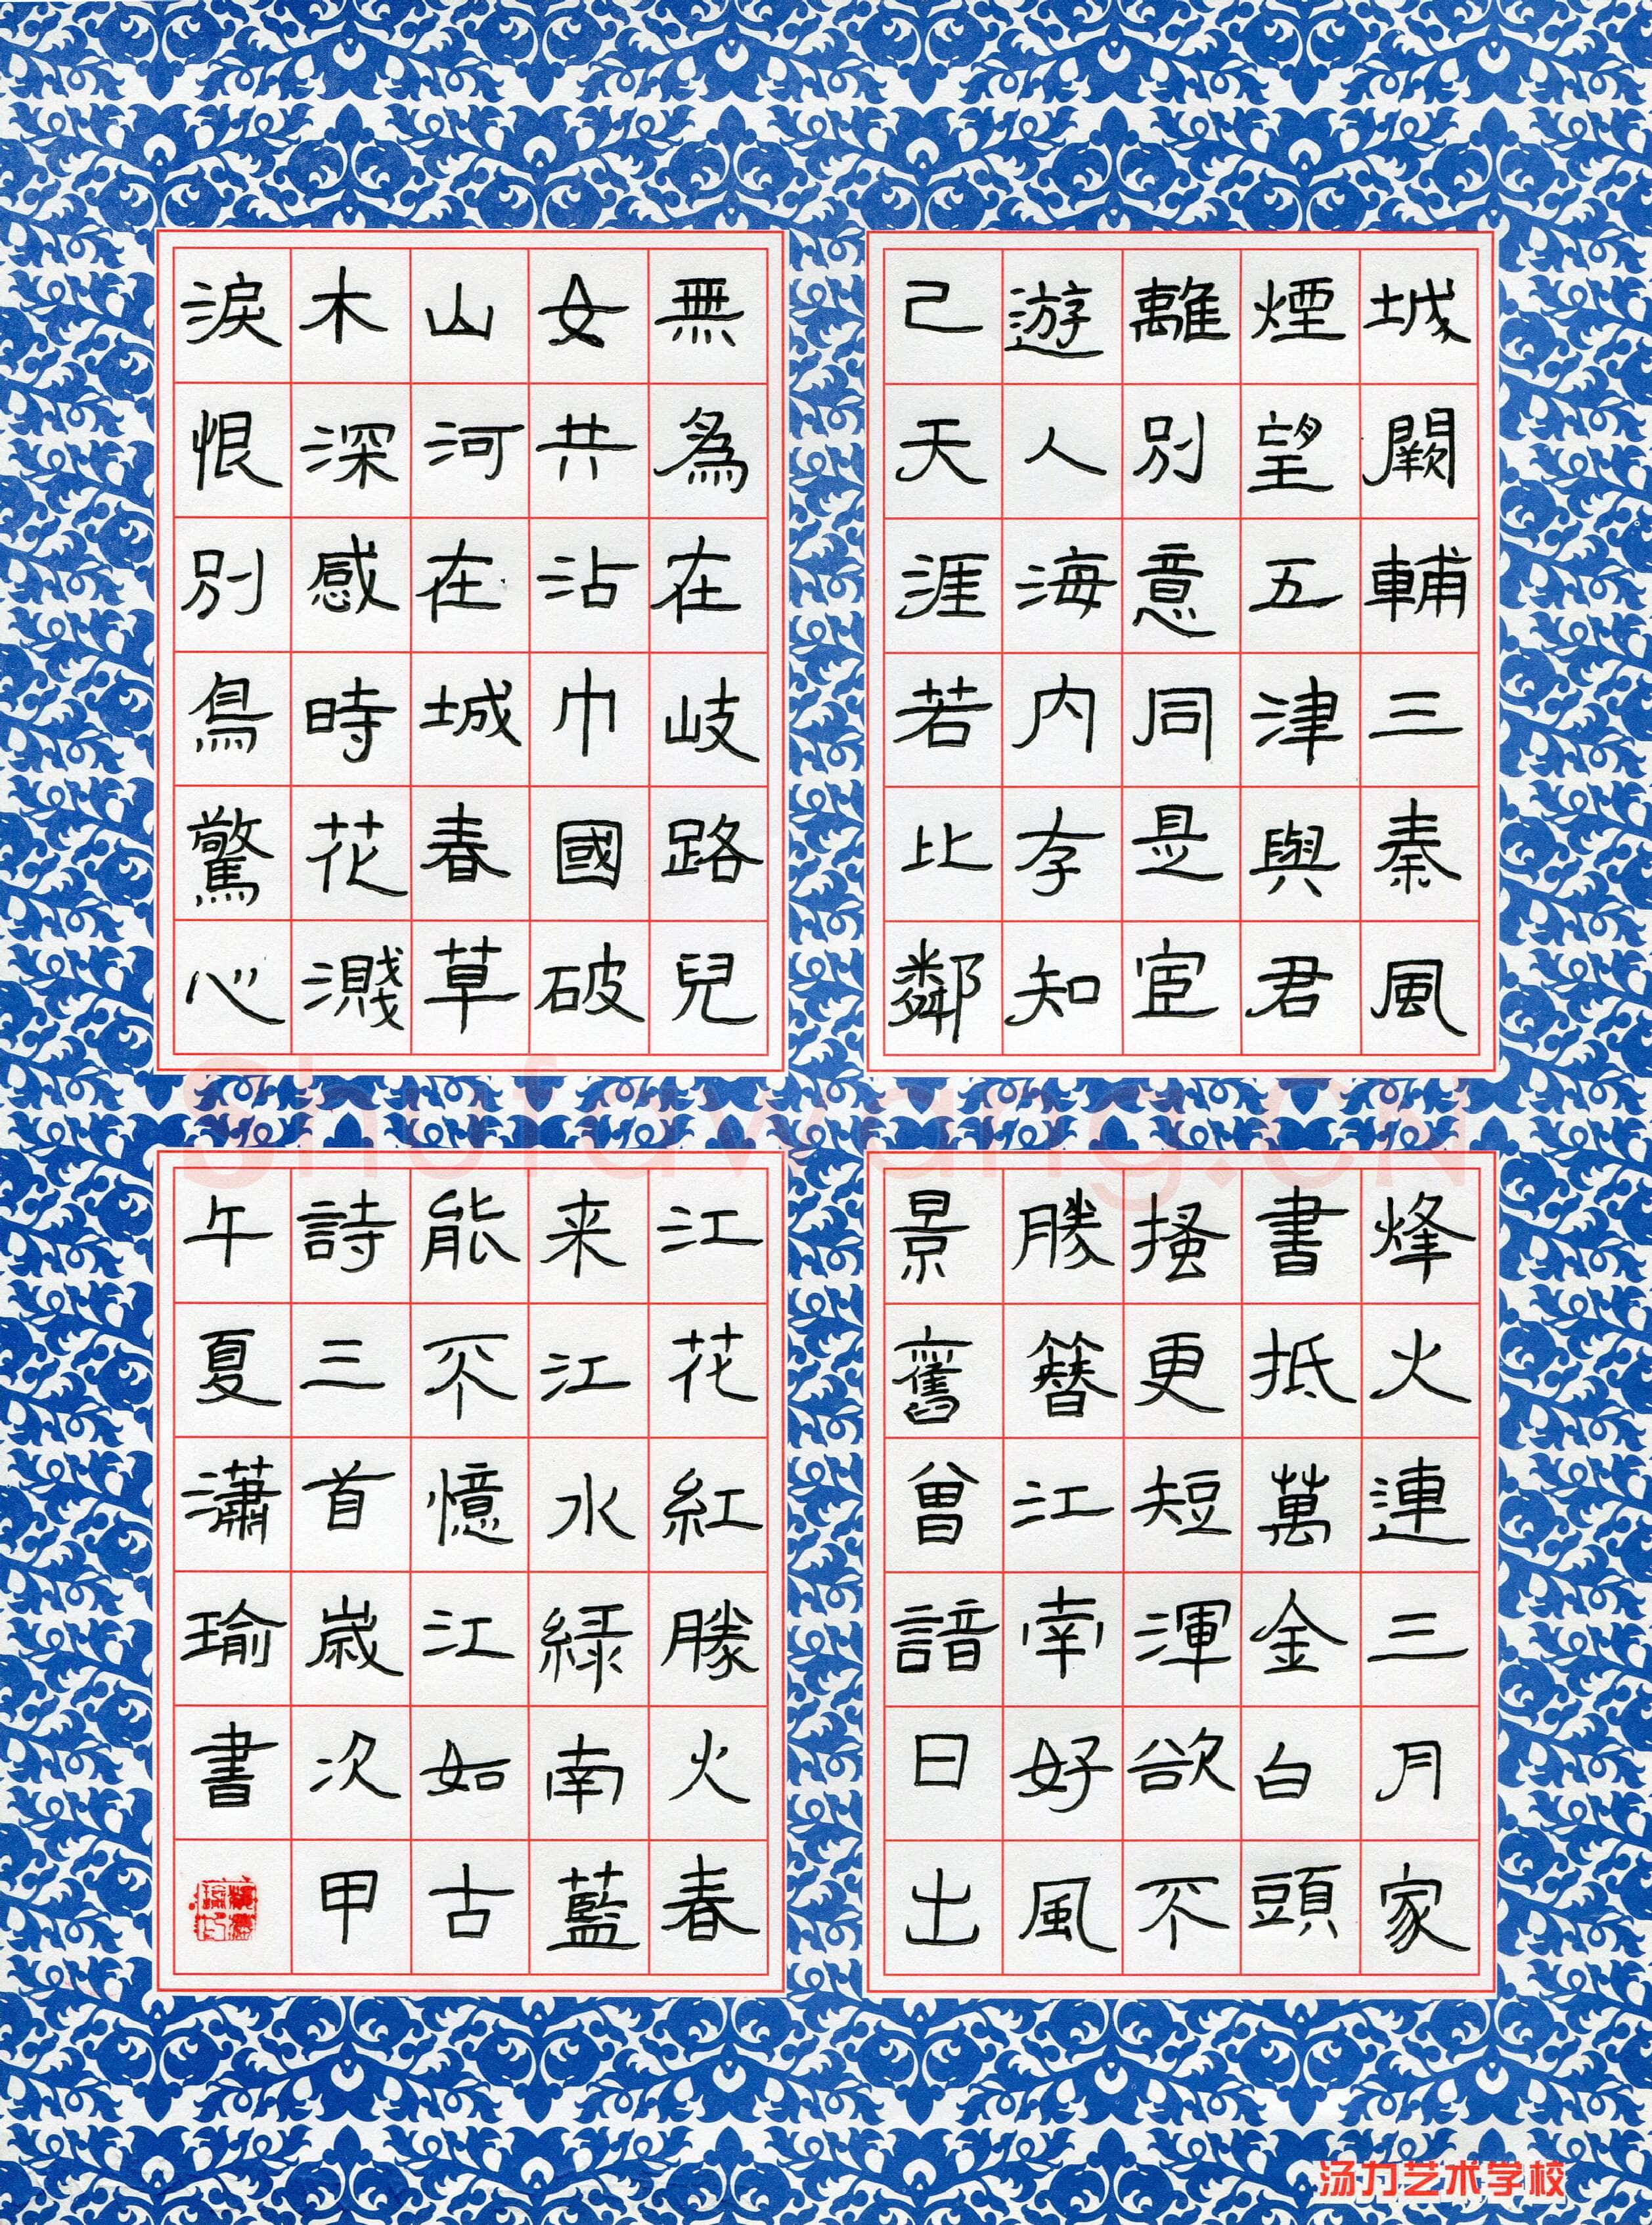 城闕輔三秦風
煙望五津與君
離別意同是宦
遊人海内存知
己天涯若比鄰
無爲在岐路兒
女共沾巾國破
山河在城春草
木深感時花濺
淚恨別鳥驚心
烽火連三月家
書抵萬金白頭
搔更短渾欲不
勝簪江南好風
景舊曾諳日出
江花紅勝火春
来江水緑南藍
能不憶江如古
詩三首歲次甲
午夏瀟瑜書
Shufawang.CN
汤力艺术学校